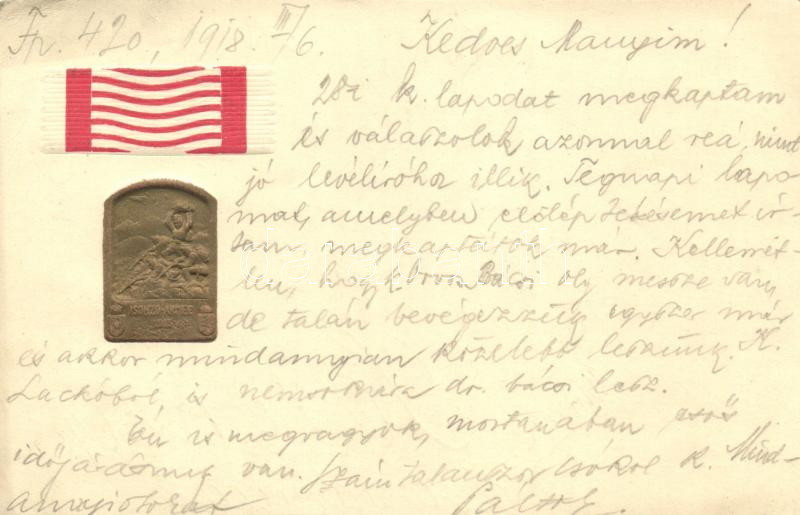 Fp. 420, 1918. III/6. Kedves Manyim!
28-i k. lapodat megkaptam
és válaszolok azonnal reá, mint
jó levélíróhoz illik. Tegnapi lapo-
mat, amelyben előléptetésemet ír-
tam, megkaptátok már. Kellemet-
len, hogy Orvos Bácsi oly messze van,
de talán bevégezzük egyszer már
és akkor mindannyian közelebb leszünk. K.
Lackóból is nemsokára dr. bácsi lesz.
Én is megvagyok, mostanában esős
időjárásunk van. Számtalanszor csókol k. Mind-
annyiotokat
ISONZO-ARMEE